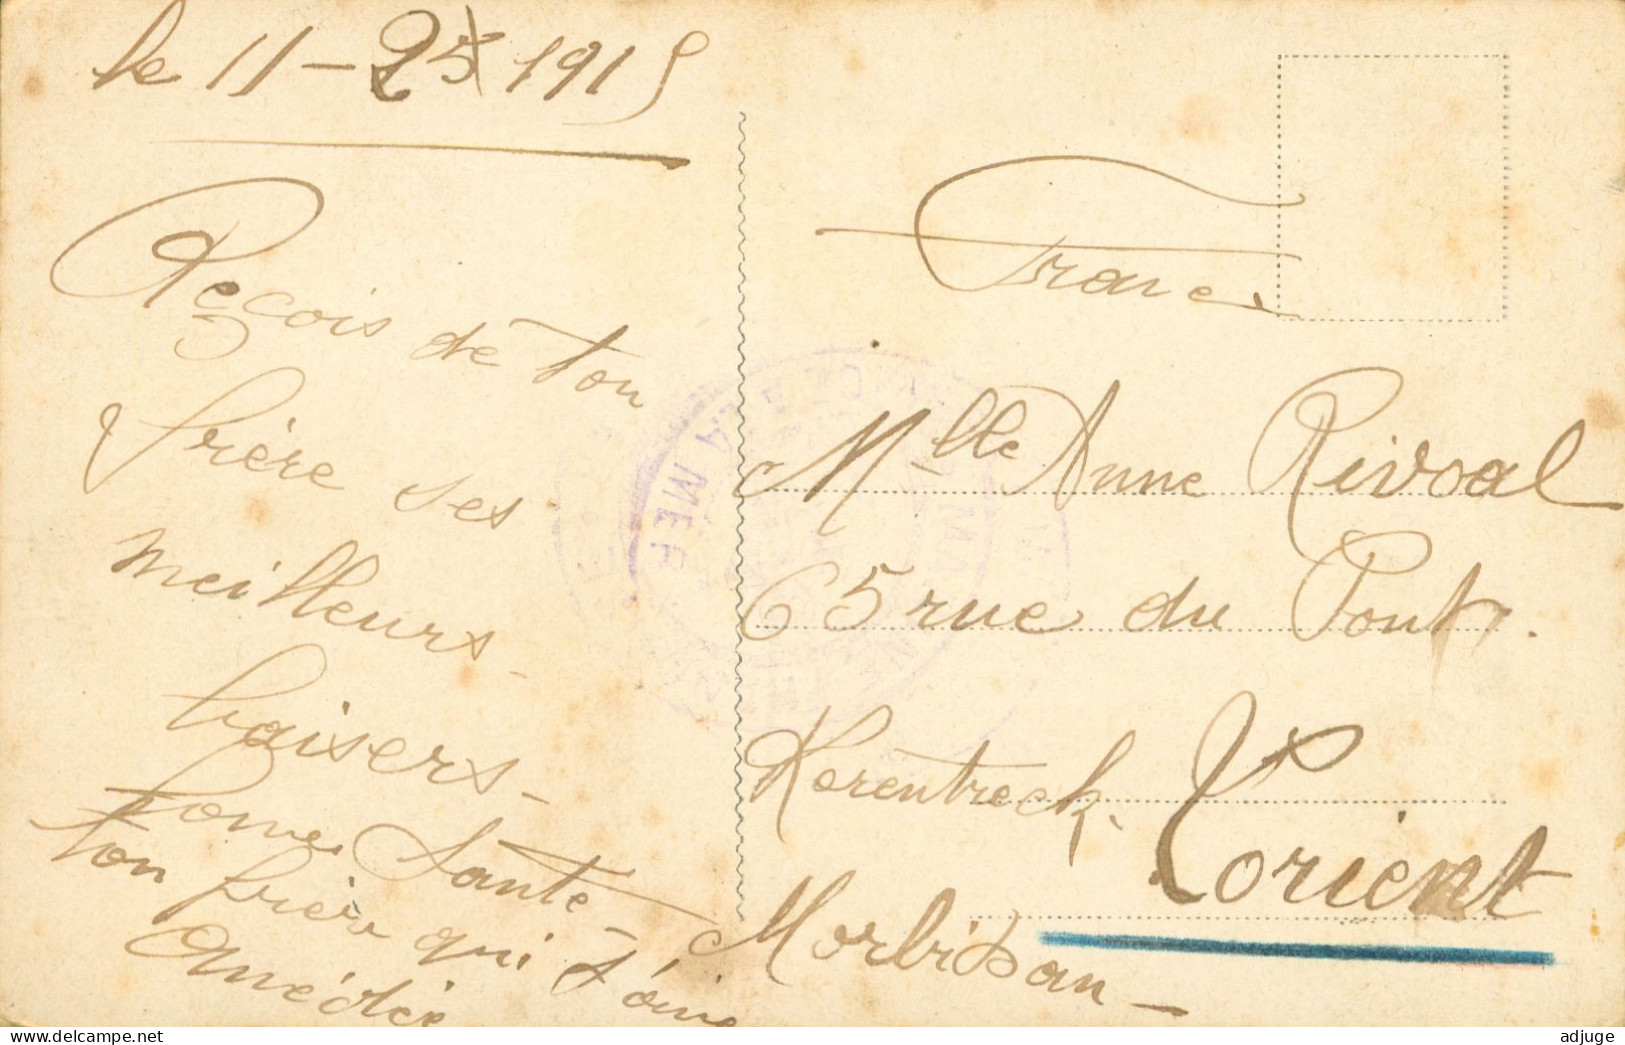 le 11-25 1915
Reçois de ton
frère ses
meilleurs
baisers -
bonne Santé -
ton frère qui t'aime
Amédée
France
Mlle Anne Rivoal
65 rue du Pont.
Kerentrech.
Lorient
Morbihan -
LA MER
adjuge.com